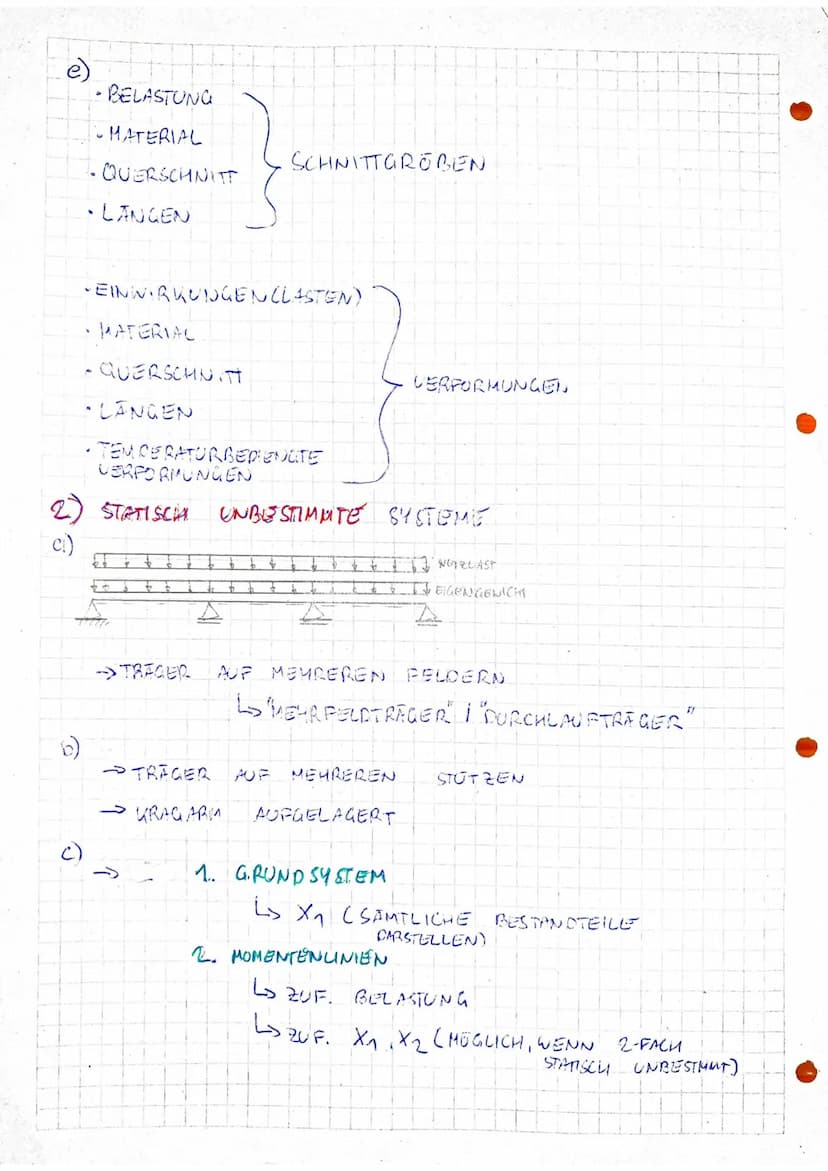 e)
· BELASTUNG
· MATERIAL
· QUERSCHNITT
· LÄNGEN
SCHNITTGRÖßEN
· EINWIRKUNGEN (LASTEN)
· MATERIAL
· QUERSCHNITT
· LÄNGEN
· TEMPERATURBEDIENGTE
VERFORMUNGEN
VERFORMUNGEN
2) STATISCH UNBESTIMMTE SYSTEME
a)
NUTZLAST
EIGENGEWICHT
→ TRÄGER AUF MEHREREN FELDERN
↳ "MEHRFELDTRÄGER" / "DURCHLAUFTRÄGER"
b)
→ TRÄGER AUF MEHREREN STÜTZEN
→ KRAGARM AUFGELAGERT
c)
→ 1. GRUNDSYSTEM
↳ X1 (SÄMTLICHE BESTANDTEILE
DARSTELLEN)
2. MOMENTENLINIEN
↳ ZUF. BELASTUNG
↳ ZUF. X1, X2 (MÖGLICH, WENN 2-FACH
STATISCH UNBESTIMMT)